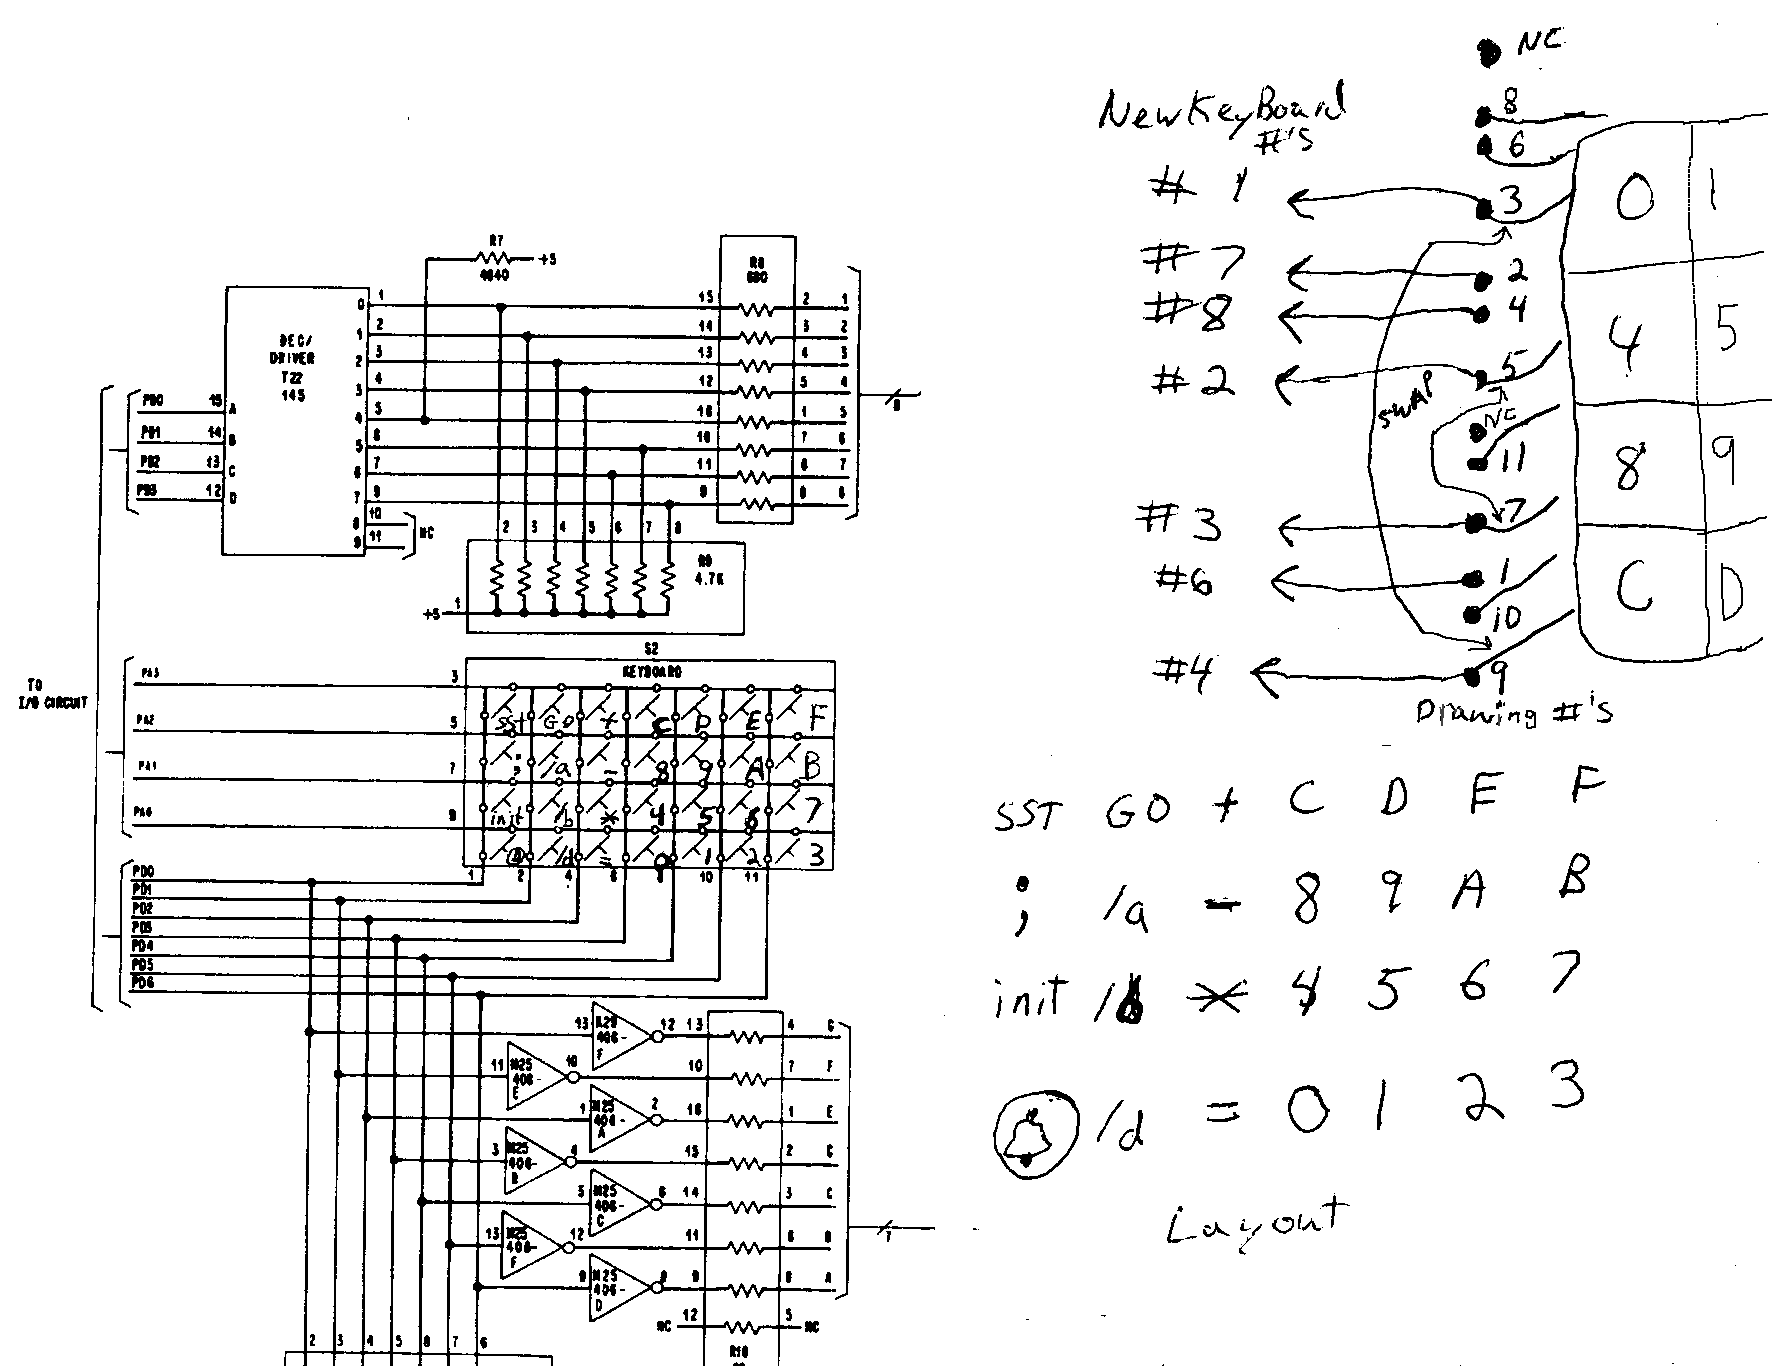 NC
NewKeyBoard
#'s
8
6
# 1
3
0 1
# 7
2
# 8
4
4 5
# 2
5
SWAP
NC
11
8 9
# 3
7
#6
1
C D
10
#4
9
Drawing #'s
R7
4640
+5
R8
680
DEC/
DRIVER
T22
145
0 1 15 2 1
1 2 14 3 2
2 3 13 4 3
3 4 12 5 4
4 5 16 1 5
5 6 10 7 6
6 7 11 6 7
7 9 9 8 8
8 10
9 11
NC
8
PB0 15 A
PB1 14 B
PB2 13 C
PB3 12 D
2 3 4 5 6 7 8
R9
4.7K
+5 1
S2
KEYBOARD
TO
I/O CIRCUIT
PA3 3
SST GO + C D E F
PA2 5
; /a - 8 9 A B
PA1 7
init /b * 4 5 6 7
PA0 9
/d = 0 1 2 3
1 2 4 6 10 11
PD0
PD1
PD2
PD3
PD4
PD5
PD6
13 M25 406-F 12 13 4 G
11 M25 406-E 10 10 7 F
1 M25 406-A 2 16 1 E
3 M25 406-B 4 15 2
5 M25 406-C 6 14 3 C
13 M25 406-F 12 11 6 B
9 M25 406-D 8 9 8 A
7
NC 12 5 NC
R10
2 3 4 5 8 7 6
SST GO + C D E F
; /a - 8 9 A B
init /b * 4 5 6 7
/d = 0 1 2 3
Layout